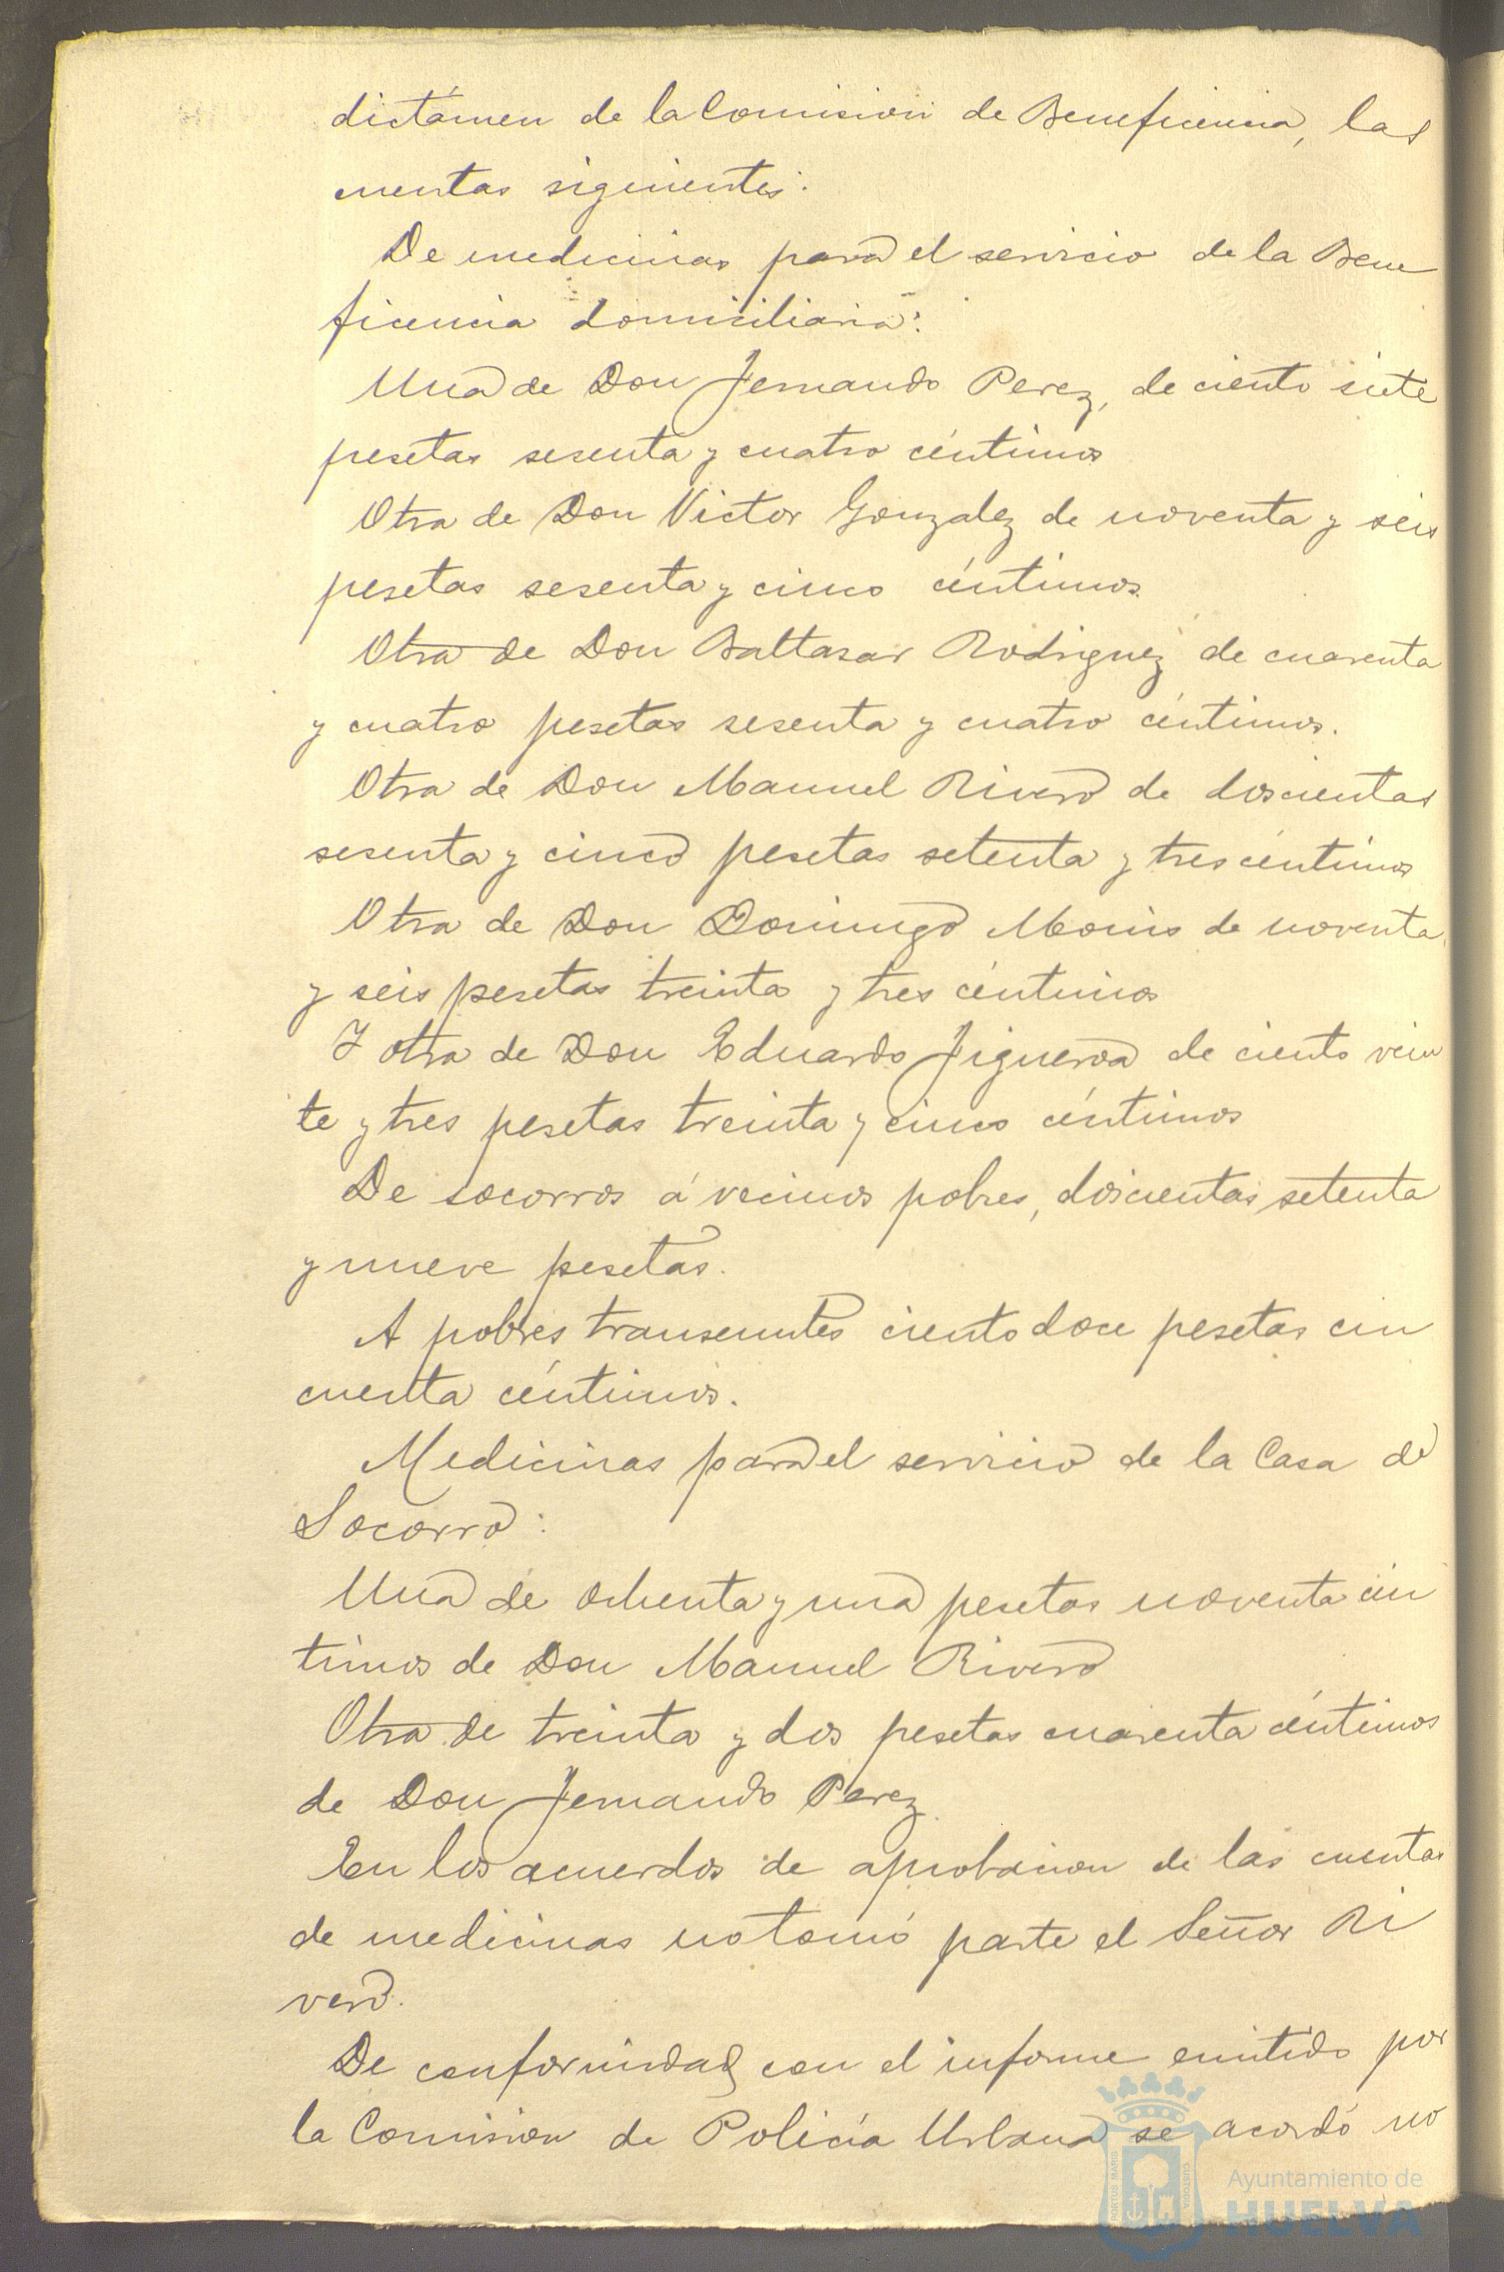 dictámen de la Comision de Beneficencia, las
cuentas siguientes:
De medicinas para el servicio de la Bene
ficencia domiciliaria:
Una de Don Fernando Perez, de ciento siete
pesetas sesenta y cuatro céntimos
Otra de Don Victor Gonzalez de noventa y seis
pesetas sesenta y cinco céntimos.
Otra de Don Baltasar Rodriguez de cuarenta
y cuatro pesetas sesenta y cuatro céntimos.
Otra de Don Manuel Rivero de doscientas
sesenta y cinco pesetas setenta y tres céntimos
Otra de Don Domingo Monis de noventa
y seis pesetas treinta y tres céntimos
Y otra de Don Eduardo Figueroa de ciento vein
te y tres pesetas treinta y cinco céntimos
De socorros á vecinos pobres, doscientas setenta
y nueve pesetas.
A pobres transeuntes ciento doce pesetas cin
cuenta céntimos.
Medicinas para el servicio de la Casa de
Socorro:
Una de ochenta y una pesetas noventa cén
timos de Don Manuel Rivero
Otra de treinta y dos pesetas cuarenta céntimos
de Don Fernando Perez
En los acuerdos de aprobacion de las cuentas
de medicinas no tomó parte el Señor Ri
vero.
De conformidad con el informe emitido por
la Comision de Policía Urbana se acordó no
PORTUS MARIS CUSTODIA
Ayuntamiento de
HUELVA